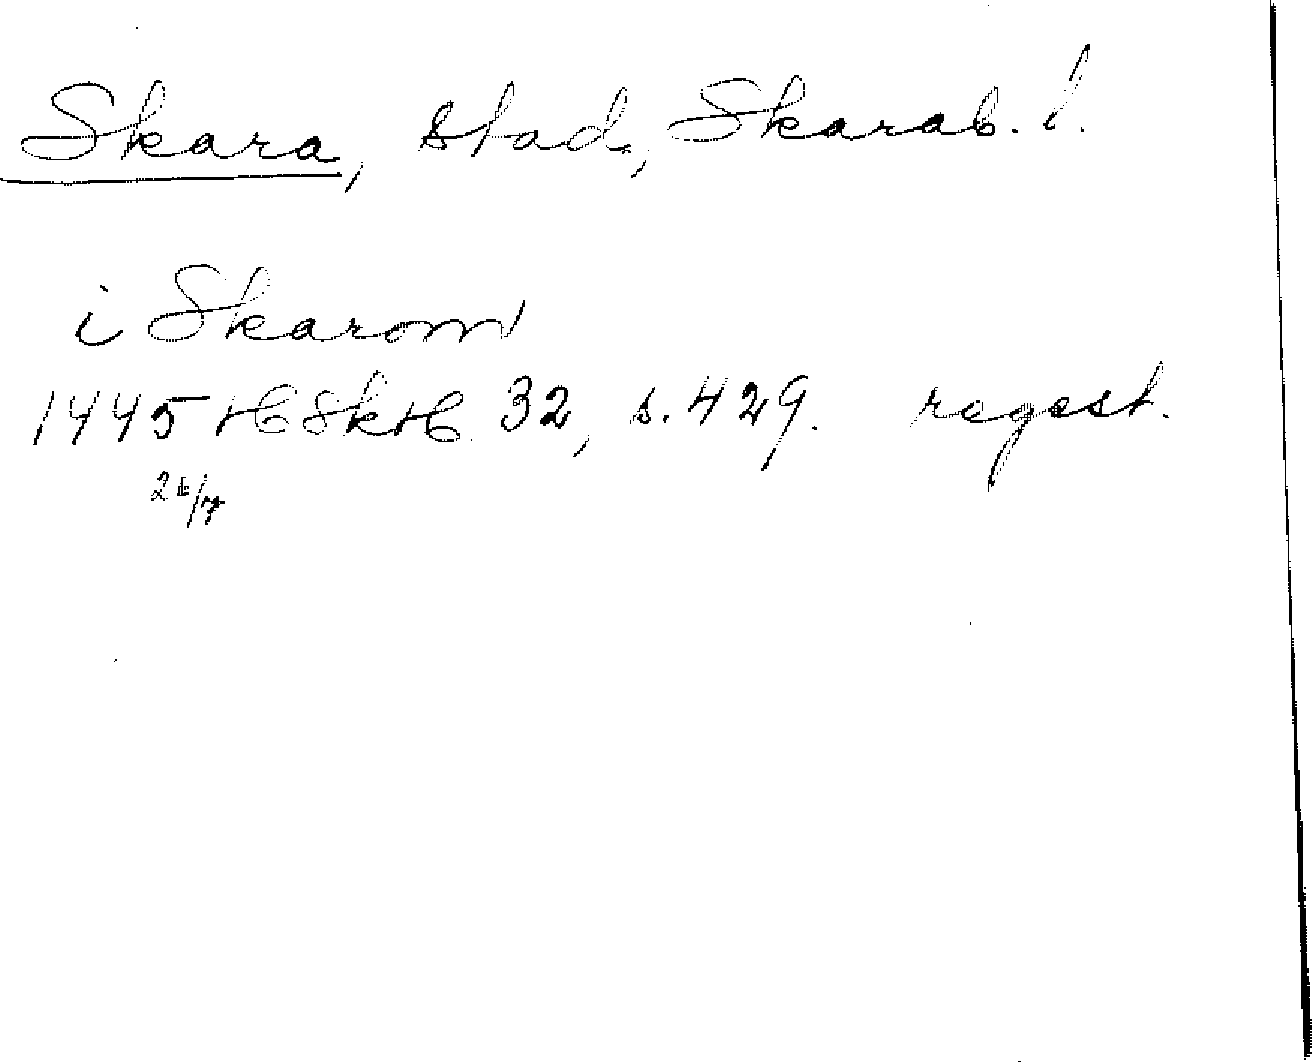 Skara, stad, Skarab. l.
i Skarom
1445 HSkH 32, s. 429. regest.